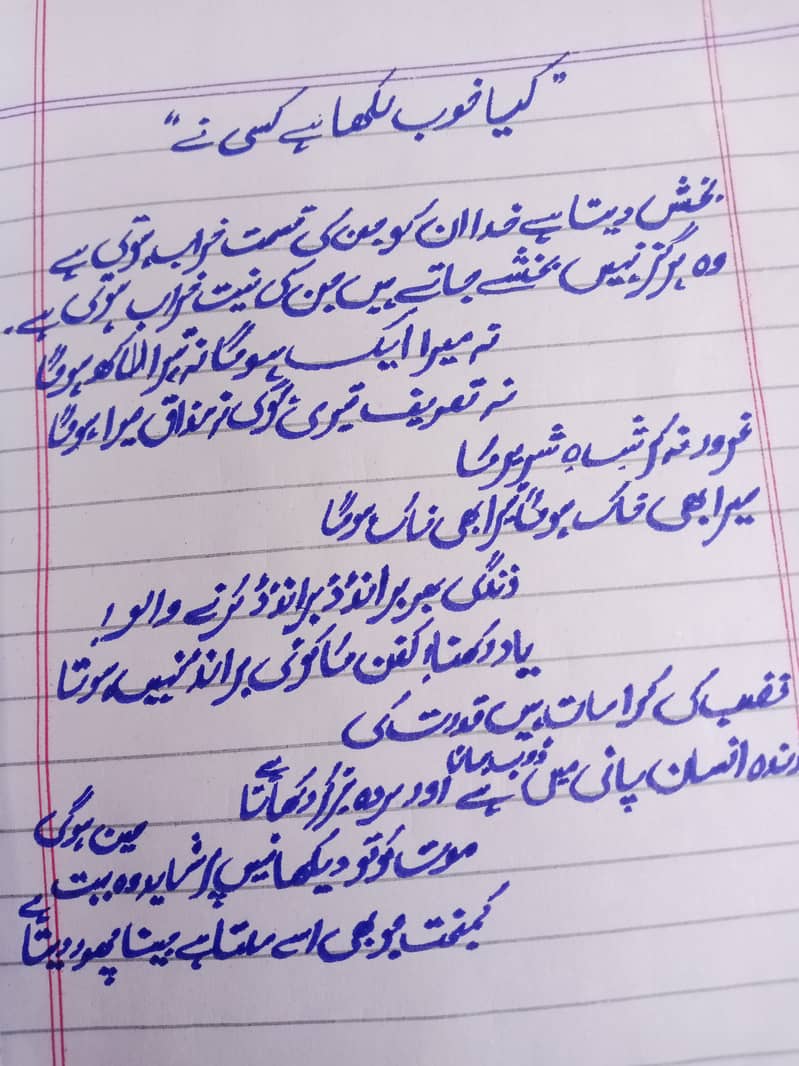 "کیا خوب لکھا ہے کسی نے"
بخش دیتا ہے خدا ان کو جن کی قسمت خراب ہوتی ہے
وہ ہرگز نہیں بخشے جاتے ہیں جن کی نیت خراب ہوتی ہے۔
نہ میرا ایک ہوگا نہ تیرا لاکھ ہوگا
نہ تعریف تیری ہوگی نہ مذاق میرا ہوگا
غرور نہ کر شاہ شریر کا
میرا بھی خاک ہوگا تیرا بھی خاک ہوگا
زندگی بھر برانڈڈ برانڈڈ کرنے والو!
یاد رکھنا کفن کا کوئی برانڈ نہیں ہوتا
غضب کی کرامات ہیں قدرت کی
زندہ انسان پانی میں ڈوب جاتا ہے اور مردہ تیر کر دکھاتا ہے
موت کو تو دیکھا نہیں پر شاید وہ بہت حسین ہوگی
کمبخت جو بھی اسے ملتا ہے جینا چھوڑ دیتا ہے